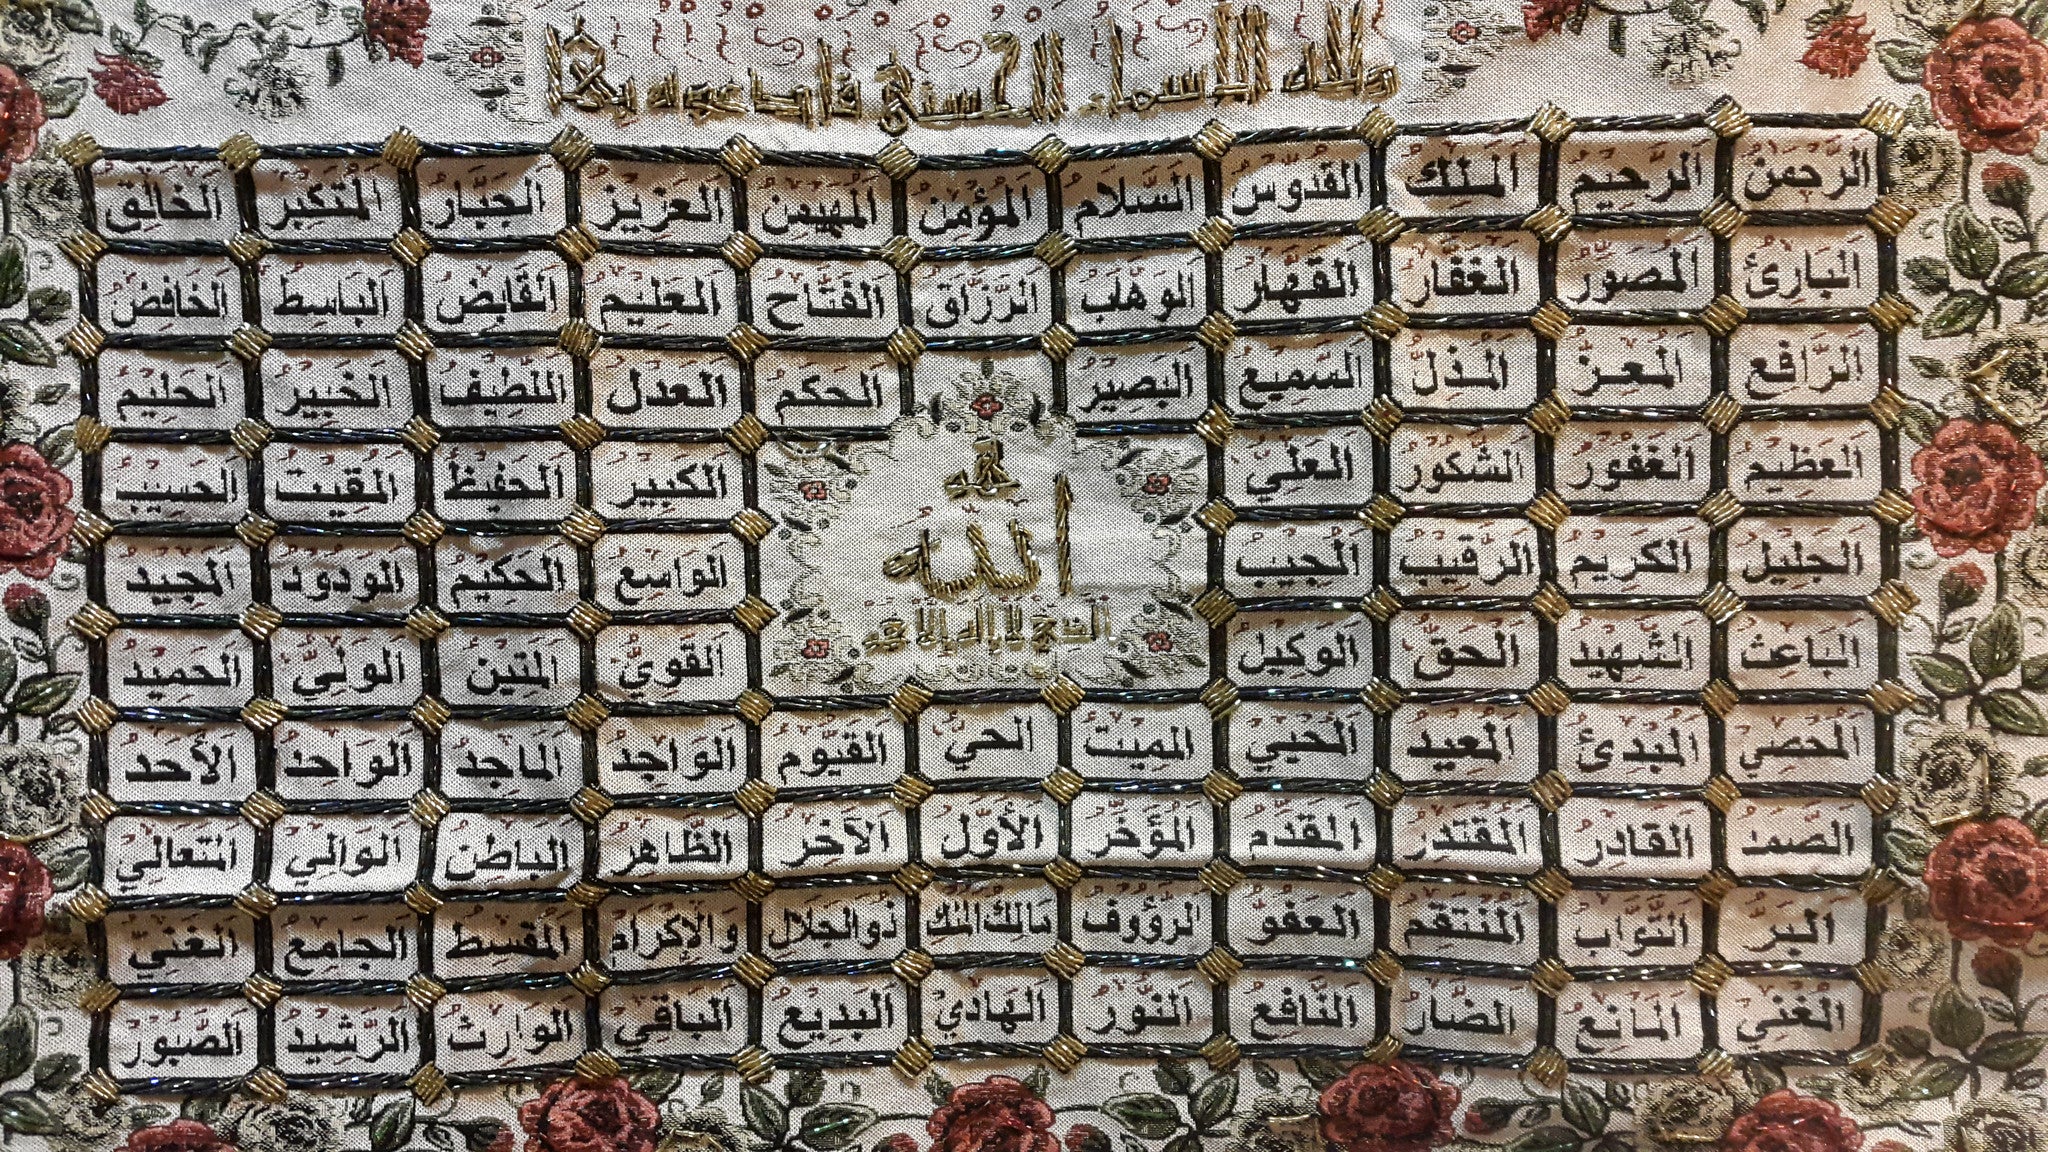 ولله الاسماء الحسنى فادعوه بها
الرحمن الرحيم الملك القدوس السلام المؤمن المهيمن العزيز الجبار المتكبر الخالق
البارئ المصور الغفار القهار الوهاب الرزاق الفتاح العليم القابض الباسط الخافض
الرافع المعز المذل السميع البصير الحكم العدل اللطيف الخبير الحليم
العظيم الغفور الشكور العلي الكبير الحفيظ المقيت الحسيب
الجليل الكريم الرقيب المجيب الواسع الحكيم الودود المجيد
هو
الله
الذي لا اله الا هو
الباعث الشهيد الحق الوكيل القوي المتين الولي الحميد
المحصي المبدئ المعيد المحيي المميت الحي القيوم الواجد الماجد الواحد الأحد
الصمد القادر المقتدر المقدم المؤخر الأول الآخر الظاهر الباطن الوالي المتعالي
البر التواب المنتقم العفو الرؤوف مالك الملك ذوالجلال والإكرام المقسط الجامع الغني
المغني المانع الضار النافع النور الهادي البديع الباقي الوارث الرشيد الصبور